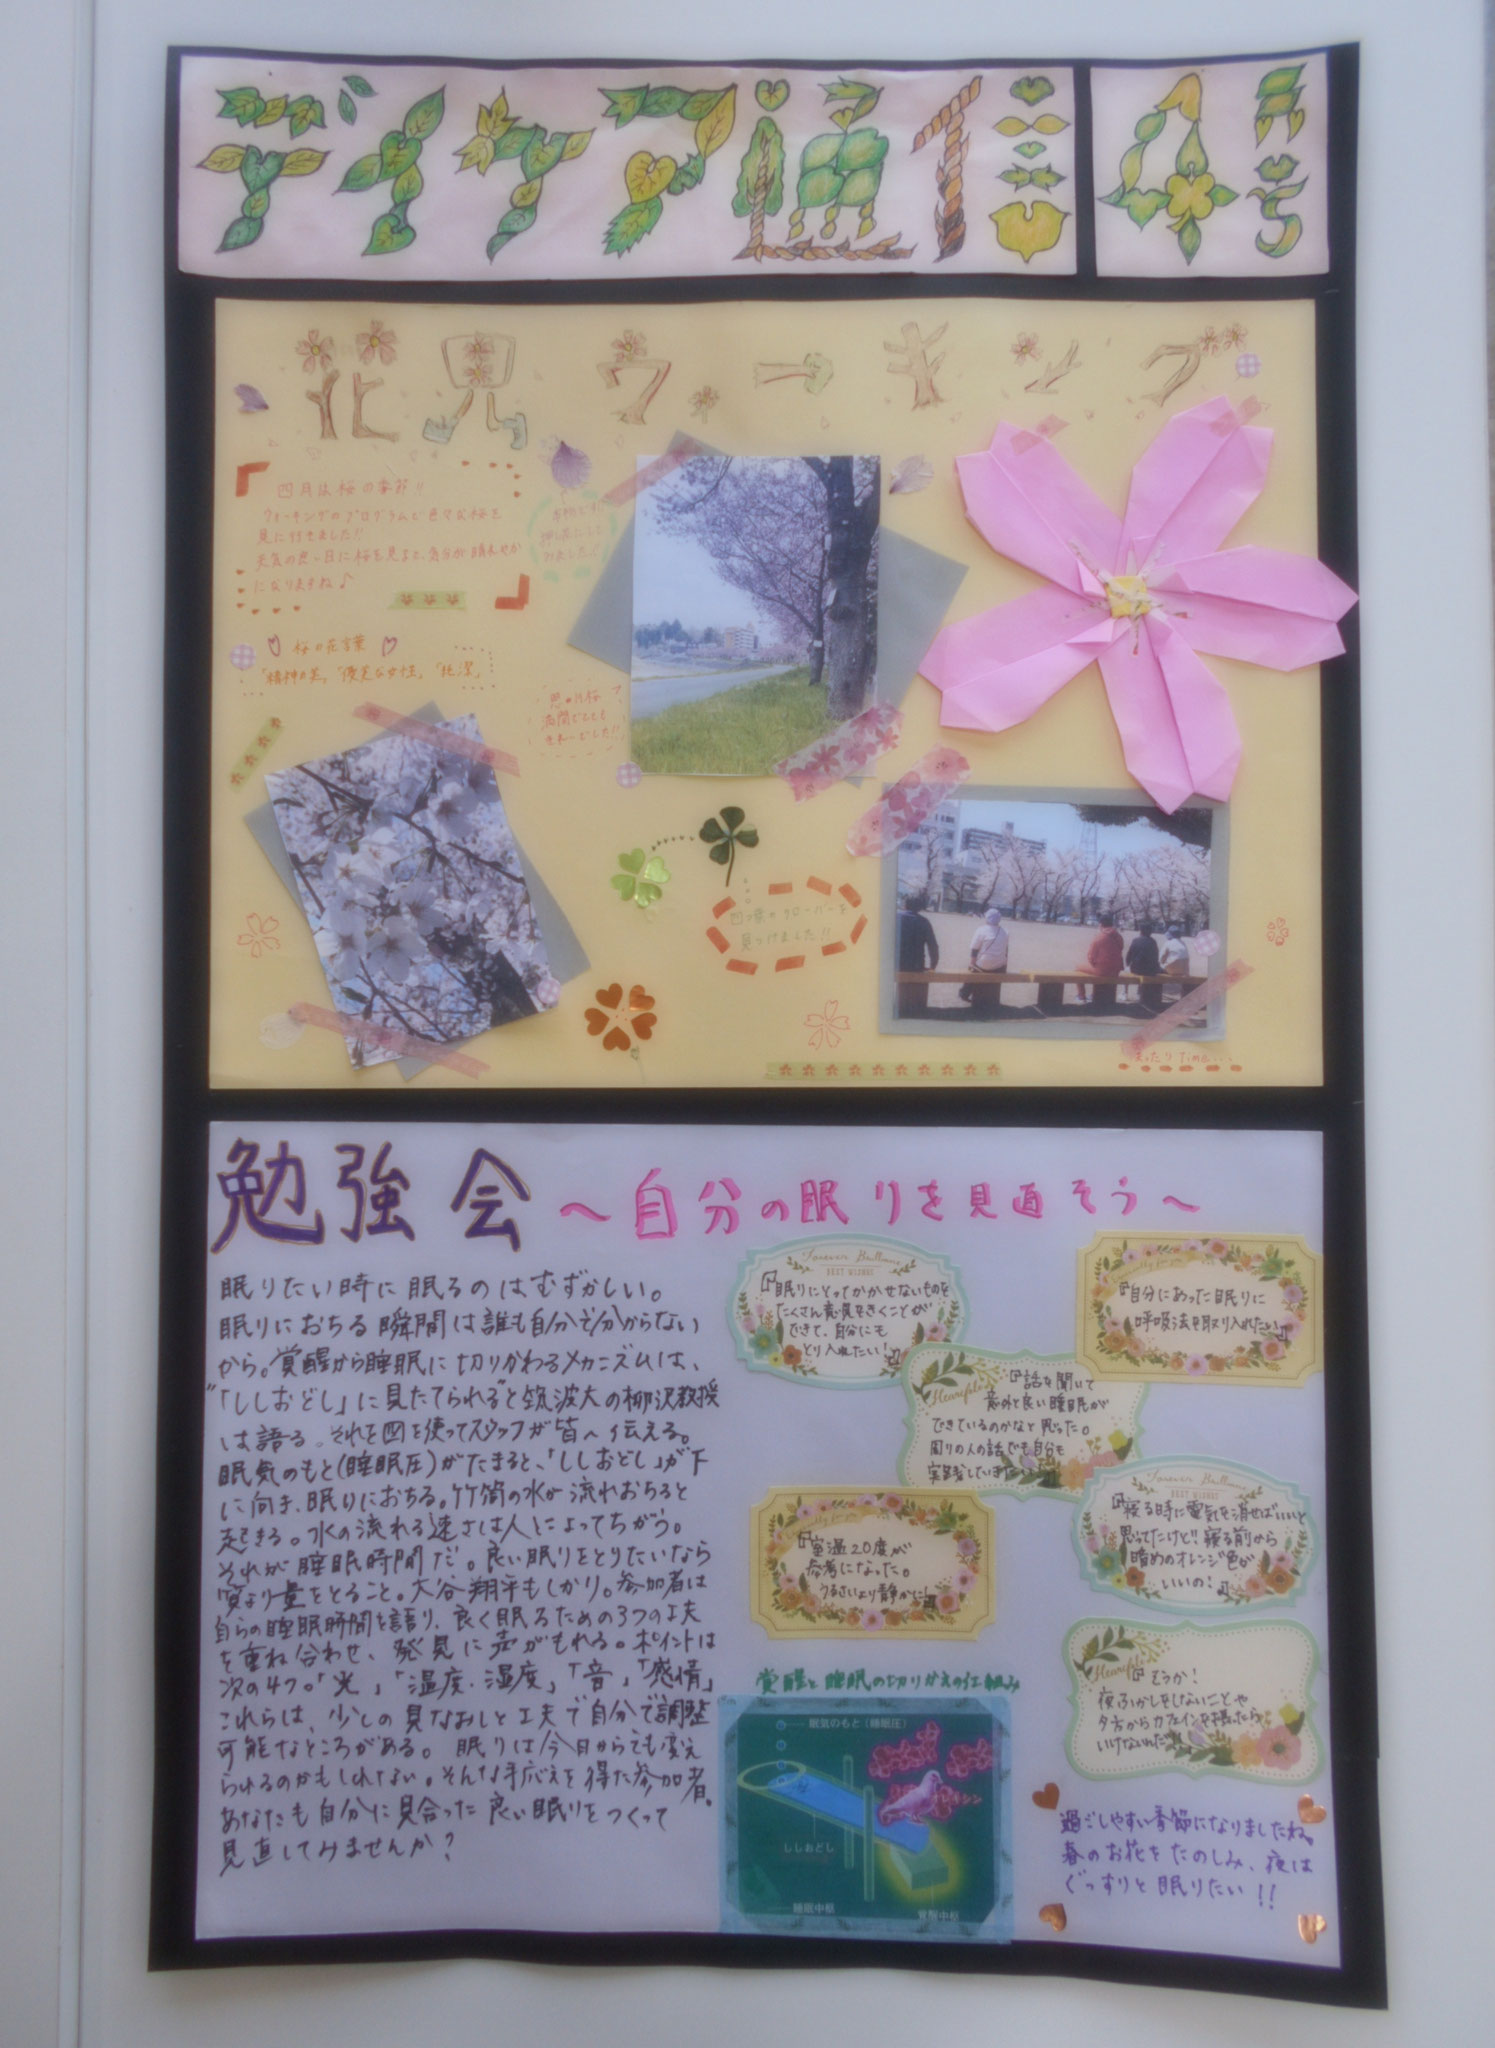 デイケア通信 4月号
花見ウォーキング
四月は桜の季節!!
ウォーキングのプログラムで色々な桜を
見に行きました!!
天気の良い日に桜を見ると、気分が晴れやか
になりますね♪
押し花にして
みました!!
桜の花言葉
「精神の美」「優美な女性」「純潔」
思い川桜
満開でとても
きれーでした!!
四つ葉のクローバーを
見つけました!!
まったりTime...
勉強会 ～自分の眠りを見直そう～
眠りたい時に眠るのはむずかしい。
眠りにおちる瞬間は誰も自分で分からない
から。覚醒から睡眠に切りかわるメカニズムは、
"「ししおどし」に見たてられる"と筑波大の柳沢教授
は語る。それを図を使ってスタッフが皆へ伝える。
眠気のもと(睡眠圧)がたまると、「ししおどし」が下
に向き、眠りにおちる。竹筒の水が流れおちると
起きる。水の流れる速さは人によってちがう。
それが睡眠時間だ。良い眠りをとりたいなら
質より量をとること。大谷翔平もしかり。参加者は
自らの睡眠時間を語り、良く眠るための3つの工夫
を重ね合わせ、発見に声がもれる。ポイントは
次の4つ。「光」「温度・湿度」「音」「感情」
これらは、少しの見なおしと工夫で自分で調整
可能なところがある。眠りは今日からでも変え
られるのかもしれない。そんな手応えを得た参加者。
あなたも自分に見合った良い眠りをつくって
見直してみませんか?
Forever Brilliant
BEST WISHES
『眠りにとってかかせないものを
たくさん意見をきくことが
できて、自分にも
とり入れたい!』
Especially for you
『自分にあった眠りに
呼吸法を取り入れたい』
Heartfelt
『話を聞いて
意外と良い睡眠が
できているのかなと思った。
周りの人の話でも自分も
実践していきたい』
Especially for you
『室温20度が
参考になった。
うるさいより静かに!』
Forever Brilliant
BEST WISHES
『寝る時に電気を消せばいいと
思ってたけど!!寝る前から
暗めのオレンジ色が
いいの!』
Heartfelt
『そうか!
夜ふかしをしないことや
夕方からカフェインを摂ったら
いけないんだ』
覚醒と睡眠の切りかえの仕組み
眠気のもと(睡眠圧)
オレキシン
ししおどし
睡眠中枢
覚醒中枢
過ごしやすい季節になりましたね。
春のお花をたのしみ、夜は
ぐっすりと眠りたい!!